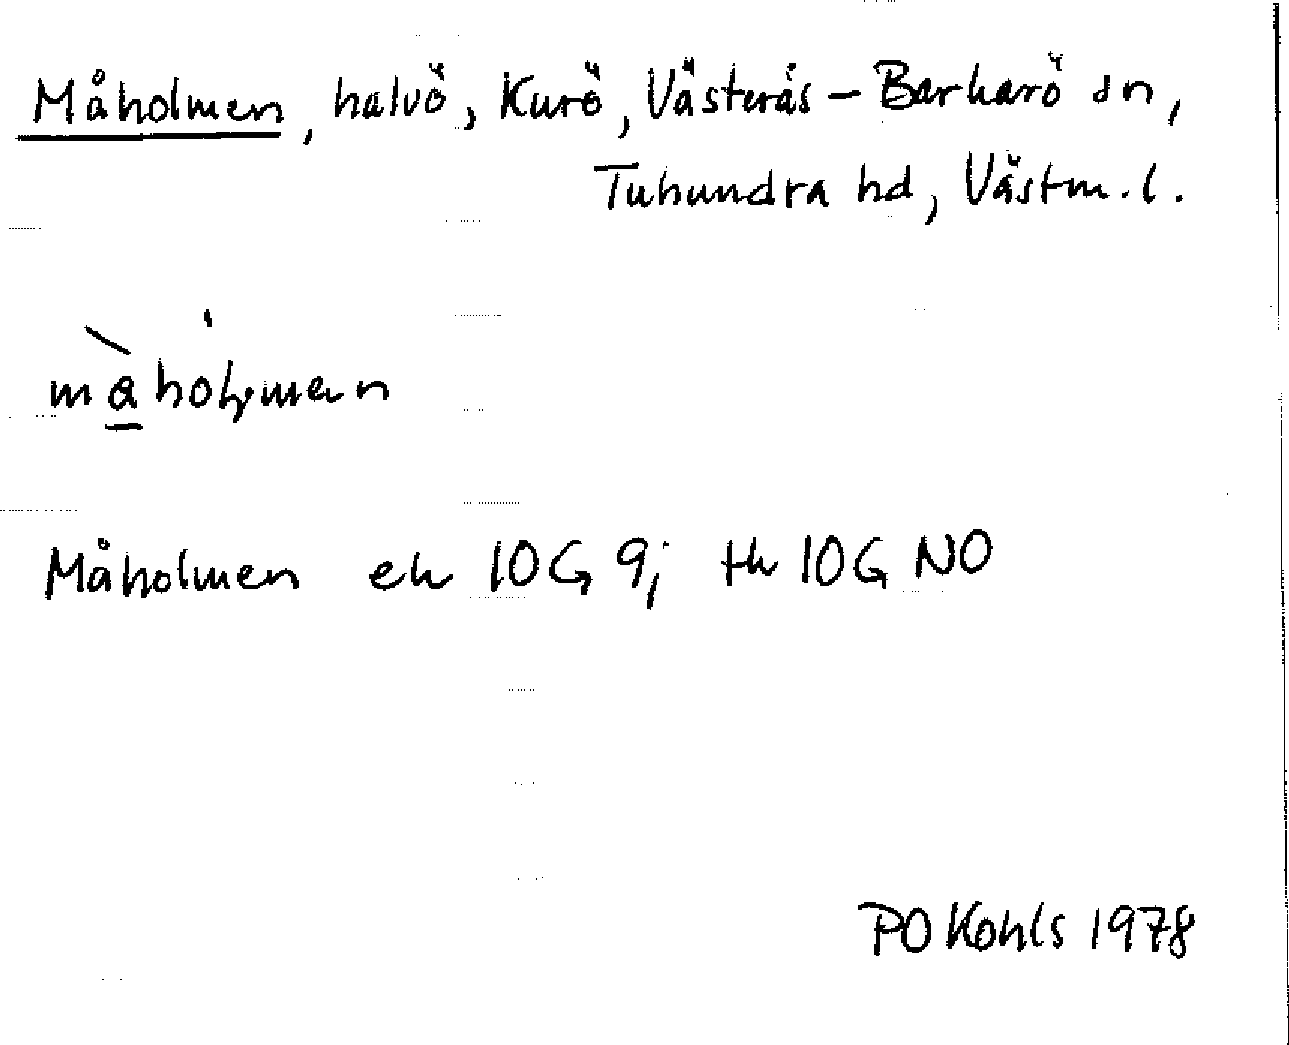 Måholmen, halvö, Kurö, Västerås-Barkarö sn,
Tuhundra hd, Västm. l.
måholmen
Måholmen ek 10G 9j tk 10G NO
PO Kohls 1978